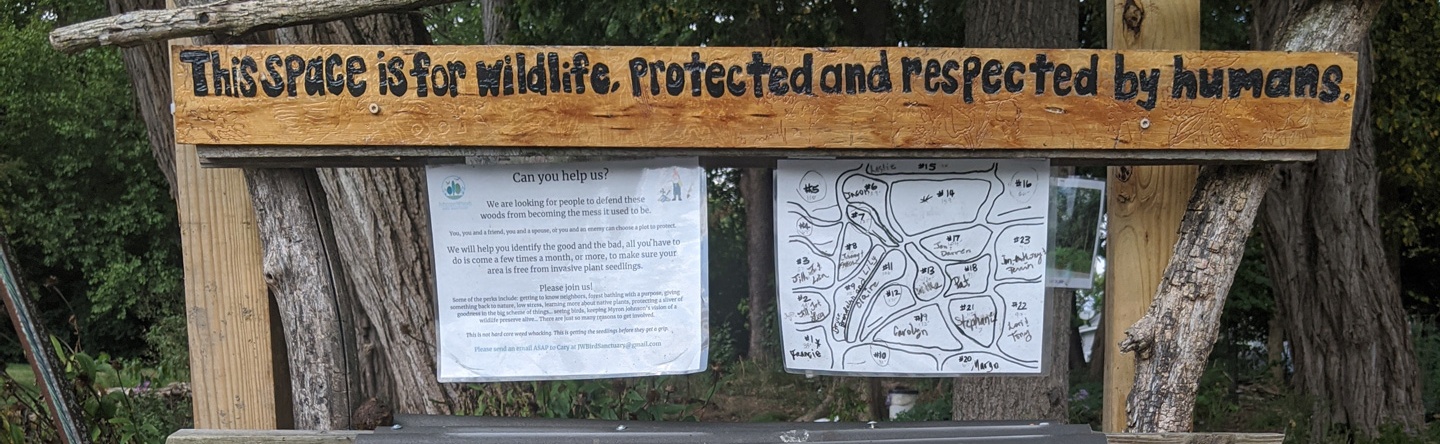 This space is for wildlife, protected and respected by humans.
Can you help us?
We are looking for people to defend these
woods from becoming the mess it used to be.
You, you and a friend, you and a spouse, or you and an enemy can choose a plot to protect.
We will help you identify the good and the bad, all you have to
do is come a few times a month, or more, to make sure your
area is free from invasive plant seedlings.
Please join us!
Some of the perks include: getting to know neighbors, forest bathing with a purpose, giving
something back to nature, low stress, learning more about native plants, protecting a sliver of
goodness in the big scheme of things... seeing birds, keeping Myron Johnson's vision of a
wildlife preserve alive... There are just so many reasons to get involved.
This is not hard core weed whacking. This is getting the seedlings before they get a grip.
Please send an email ASAP to Cary at JWBirdSanctuary@gmail.com
Leslie #15
#5
Jason #6
#14
#16
#7
#4
#8
#17
Darren
#23
#3
#11
#13
#18
Pat
#9
Claire
#12
#2
#19
Carolyn
#21
Stephanie
#22
Lori &
Troy
#1
#10
#20
Margo